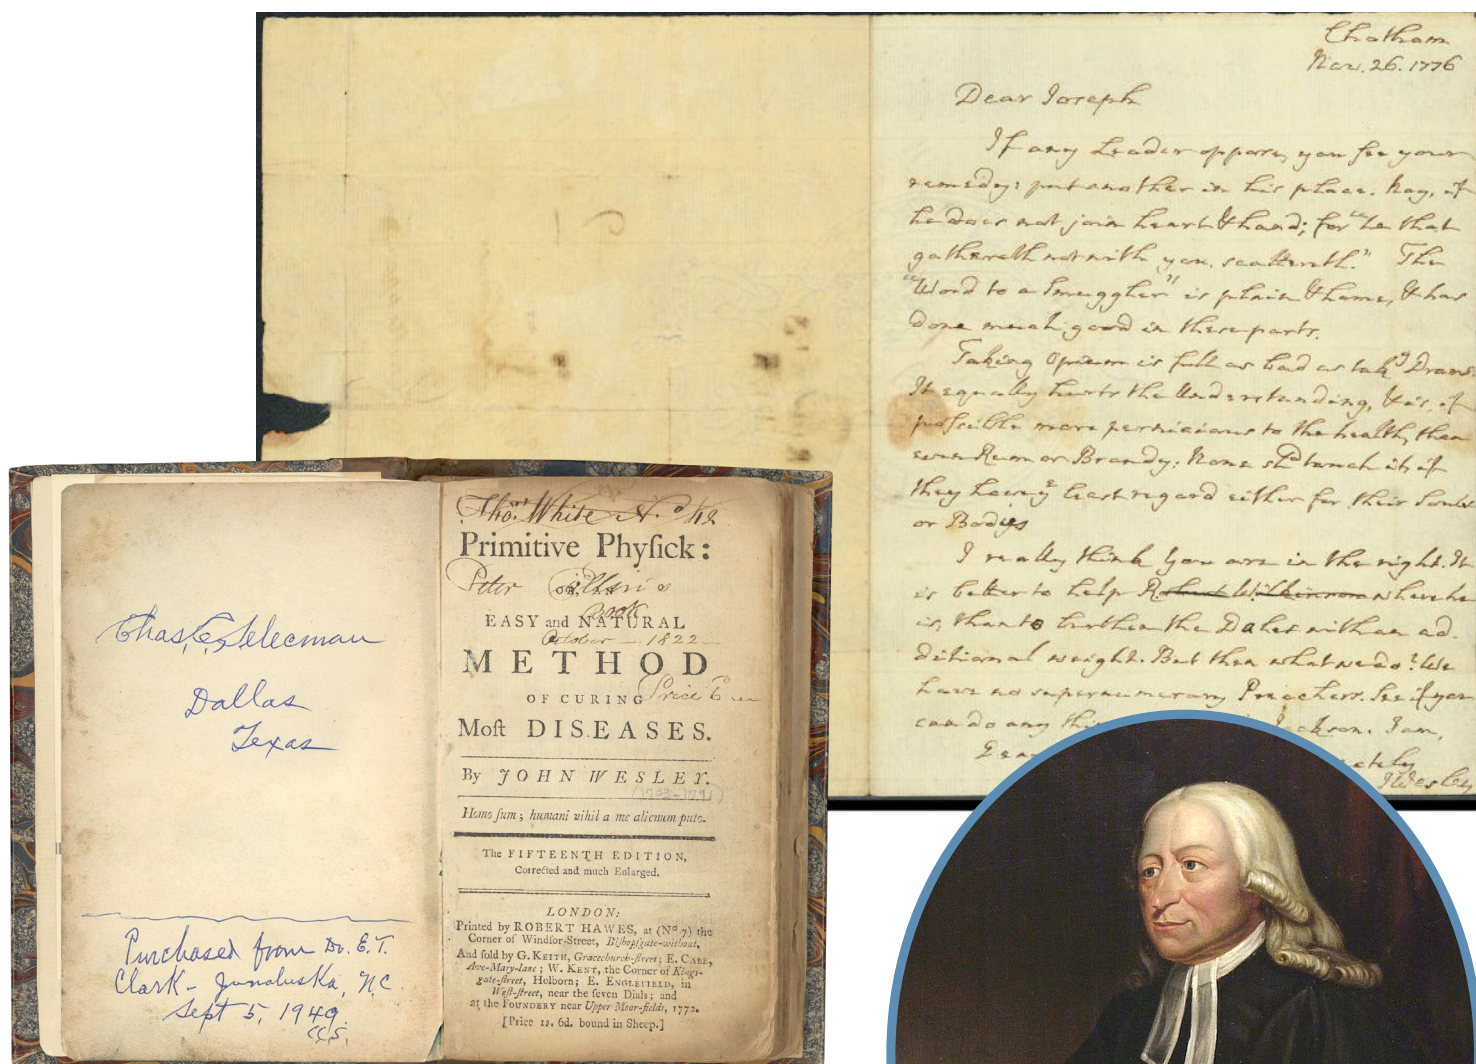 Chatham
Nov. 26. 1776
Dear Joseph
If any Leader oppose, you see your
remedy: put another in his place. Nay, if
he does not join heart & hand; for "he that
gathereth not with you, scattereth." The
"Word to a Smuggler" is plain & home, & has
done much good in these parts.
Taking Opium is full as bad as takg Drams.
It equally hurts the Understanding, & is, if
possible more pernicious to the health, than
even Rum or Brandy: None shd touch it if
they have ye least regard either for their Souls
or Bodies
I really think you are in the right. It
is better to help Robert Wilkinson where he
is, than to burthen the Dales with an ad-
ditional weight. But then what we do? We
have no supernumerary Preachers. See if you
can do any thi ackson. I am,
Dear ately
JWesley
Chas. C. Selecman
Dallas
Texas
Purchased from Dr. E. T.
Clark - Junaluska, NC
Sept 5, 1949
CCS.
Thos. White
Primitive Phyſick:
Peter
OR, AN
Book
EASY and NATURAL
October 1822
METHOD
OF CURING Price
Moſt DISEASES.
By JOHN WESLEY.
(1703-1791)
Homo ſum; humani nihil a me alienum puto.
The FIFTEENTH EDITION,
Corrected and much Enlarged.
LONDON:
Printed by ROBERT HAWES, at (No 7) the
Corner of Windſor-Street, Biſhopſgate-without,
And ſold by G. KEITH, Gracechurch-ſtreet; E. CABE,
Ave-Mary-lane; W. KENT, the Corner of Kingſ-
gate-ſtreet, Holborn; E. ENGLEFIELD, in
Weſt-ſtreet, near the ſeven Dials; and
at the FOUNDERY near Upper Moor-fields, 1772.
[Price 1s. 6d. bound in Sheep.]